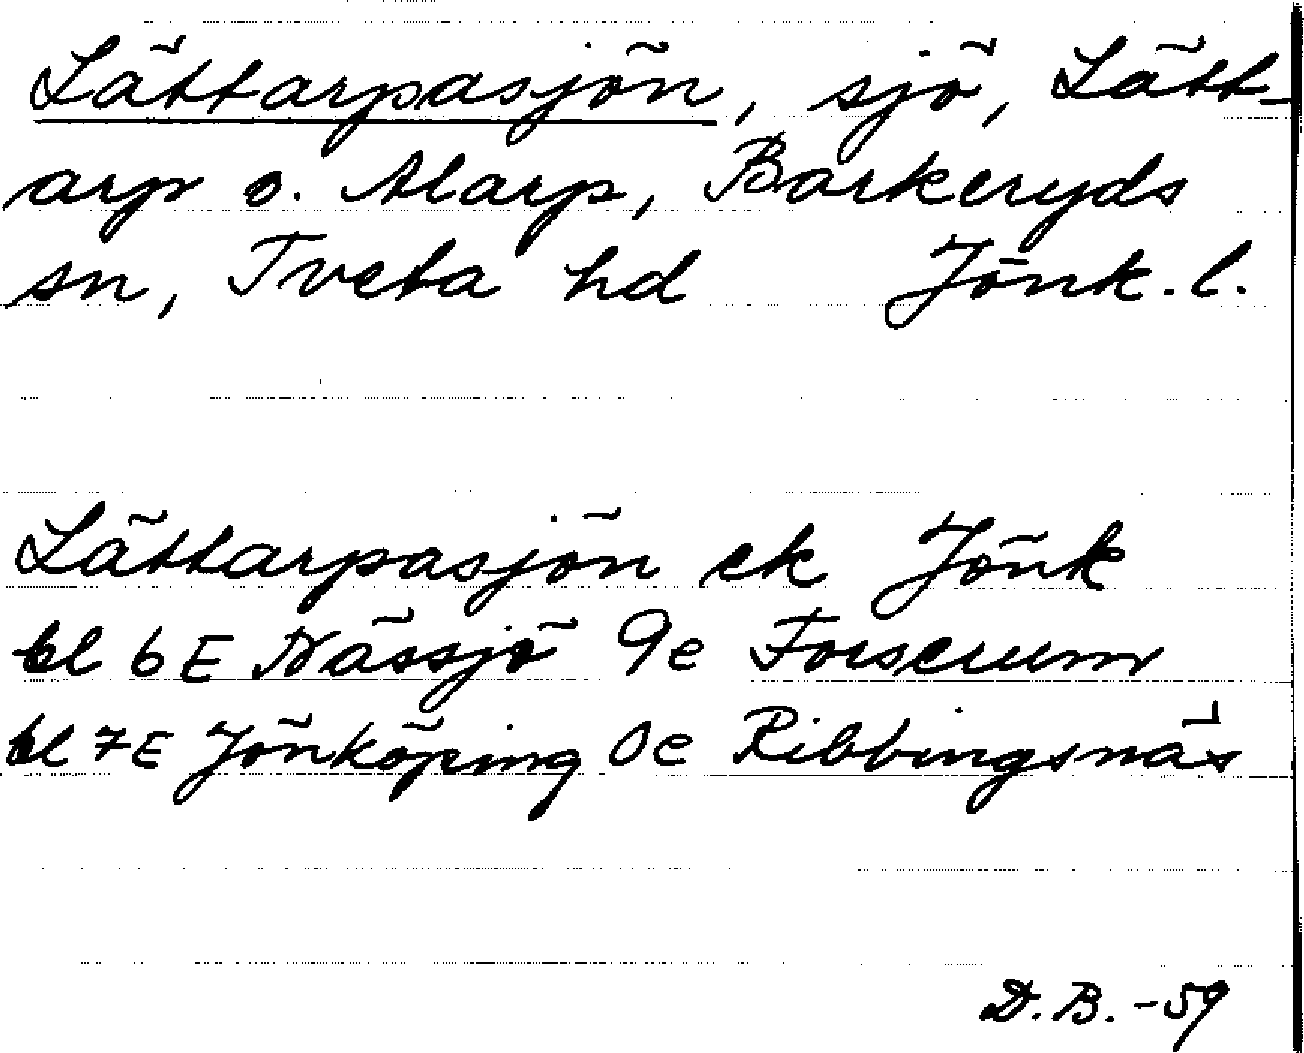 Lättarpasjön, sjö, Lätt-
arp o. Alarp, Barkeryds
sn, Tveta hd Jönk. l.
Lättarpasjön ek Jönk
bl 6E Nässjö 9e Forserum
bl 7E Jönköping 0e Ribbingsnäs
D. B. -59